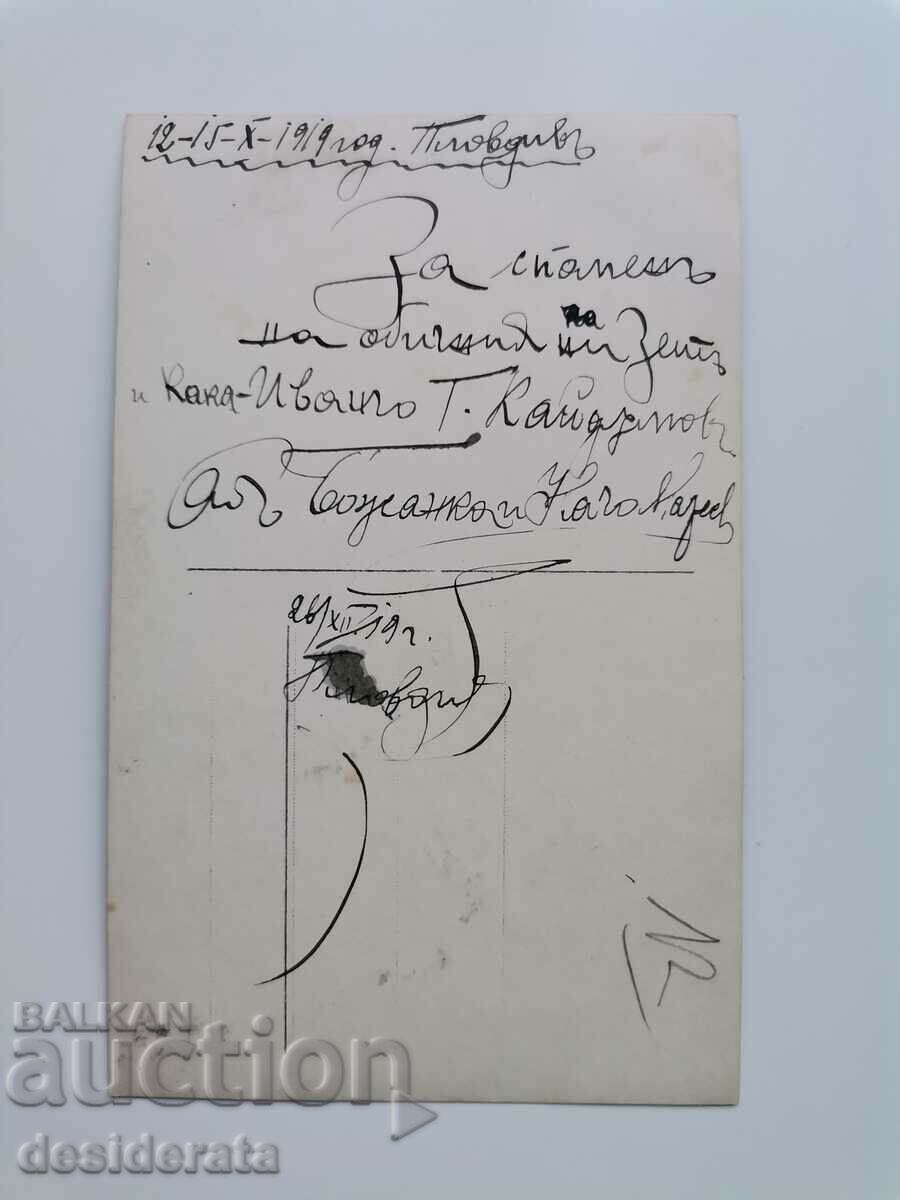 12-15-X-1919 год. Пловдивъ
За спомень
на обичния ни Зетъ
и Кака-Иванчо Г. Кайдъмовъ
Отъ Божанка и Начо
26/XII 19 г.
Пловдив
12
BALKAN
auction
desiderata